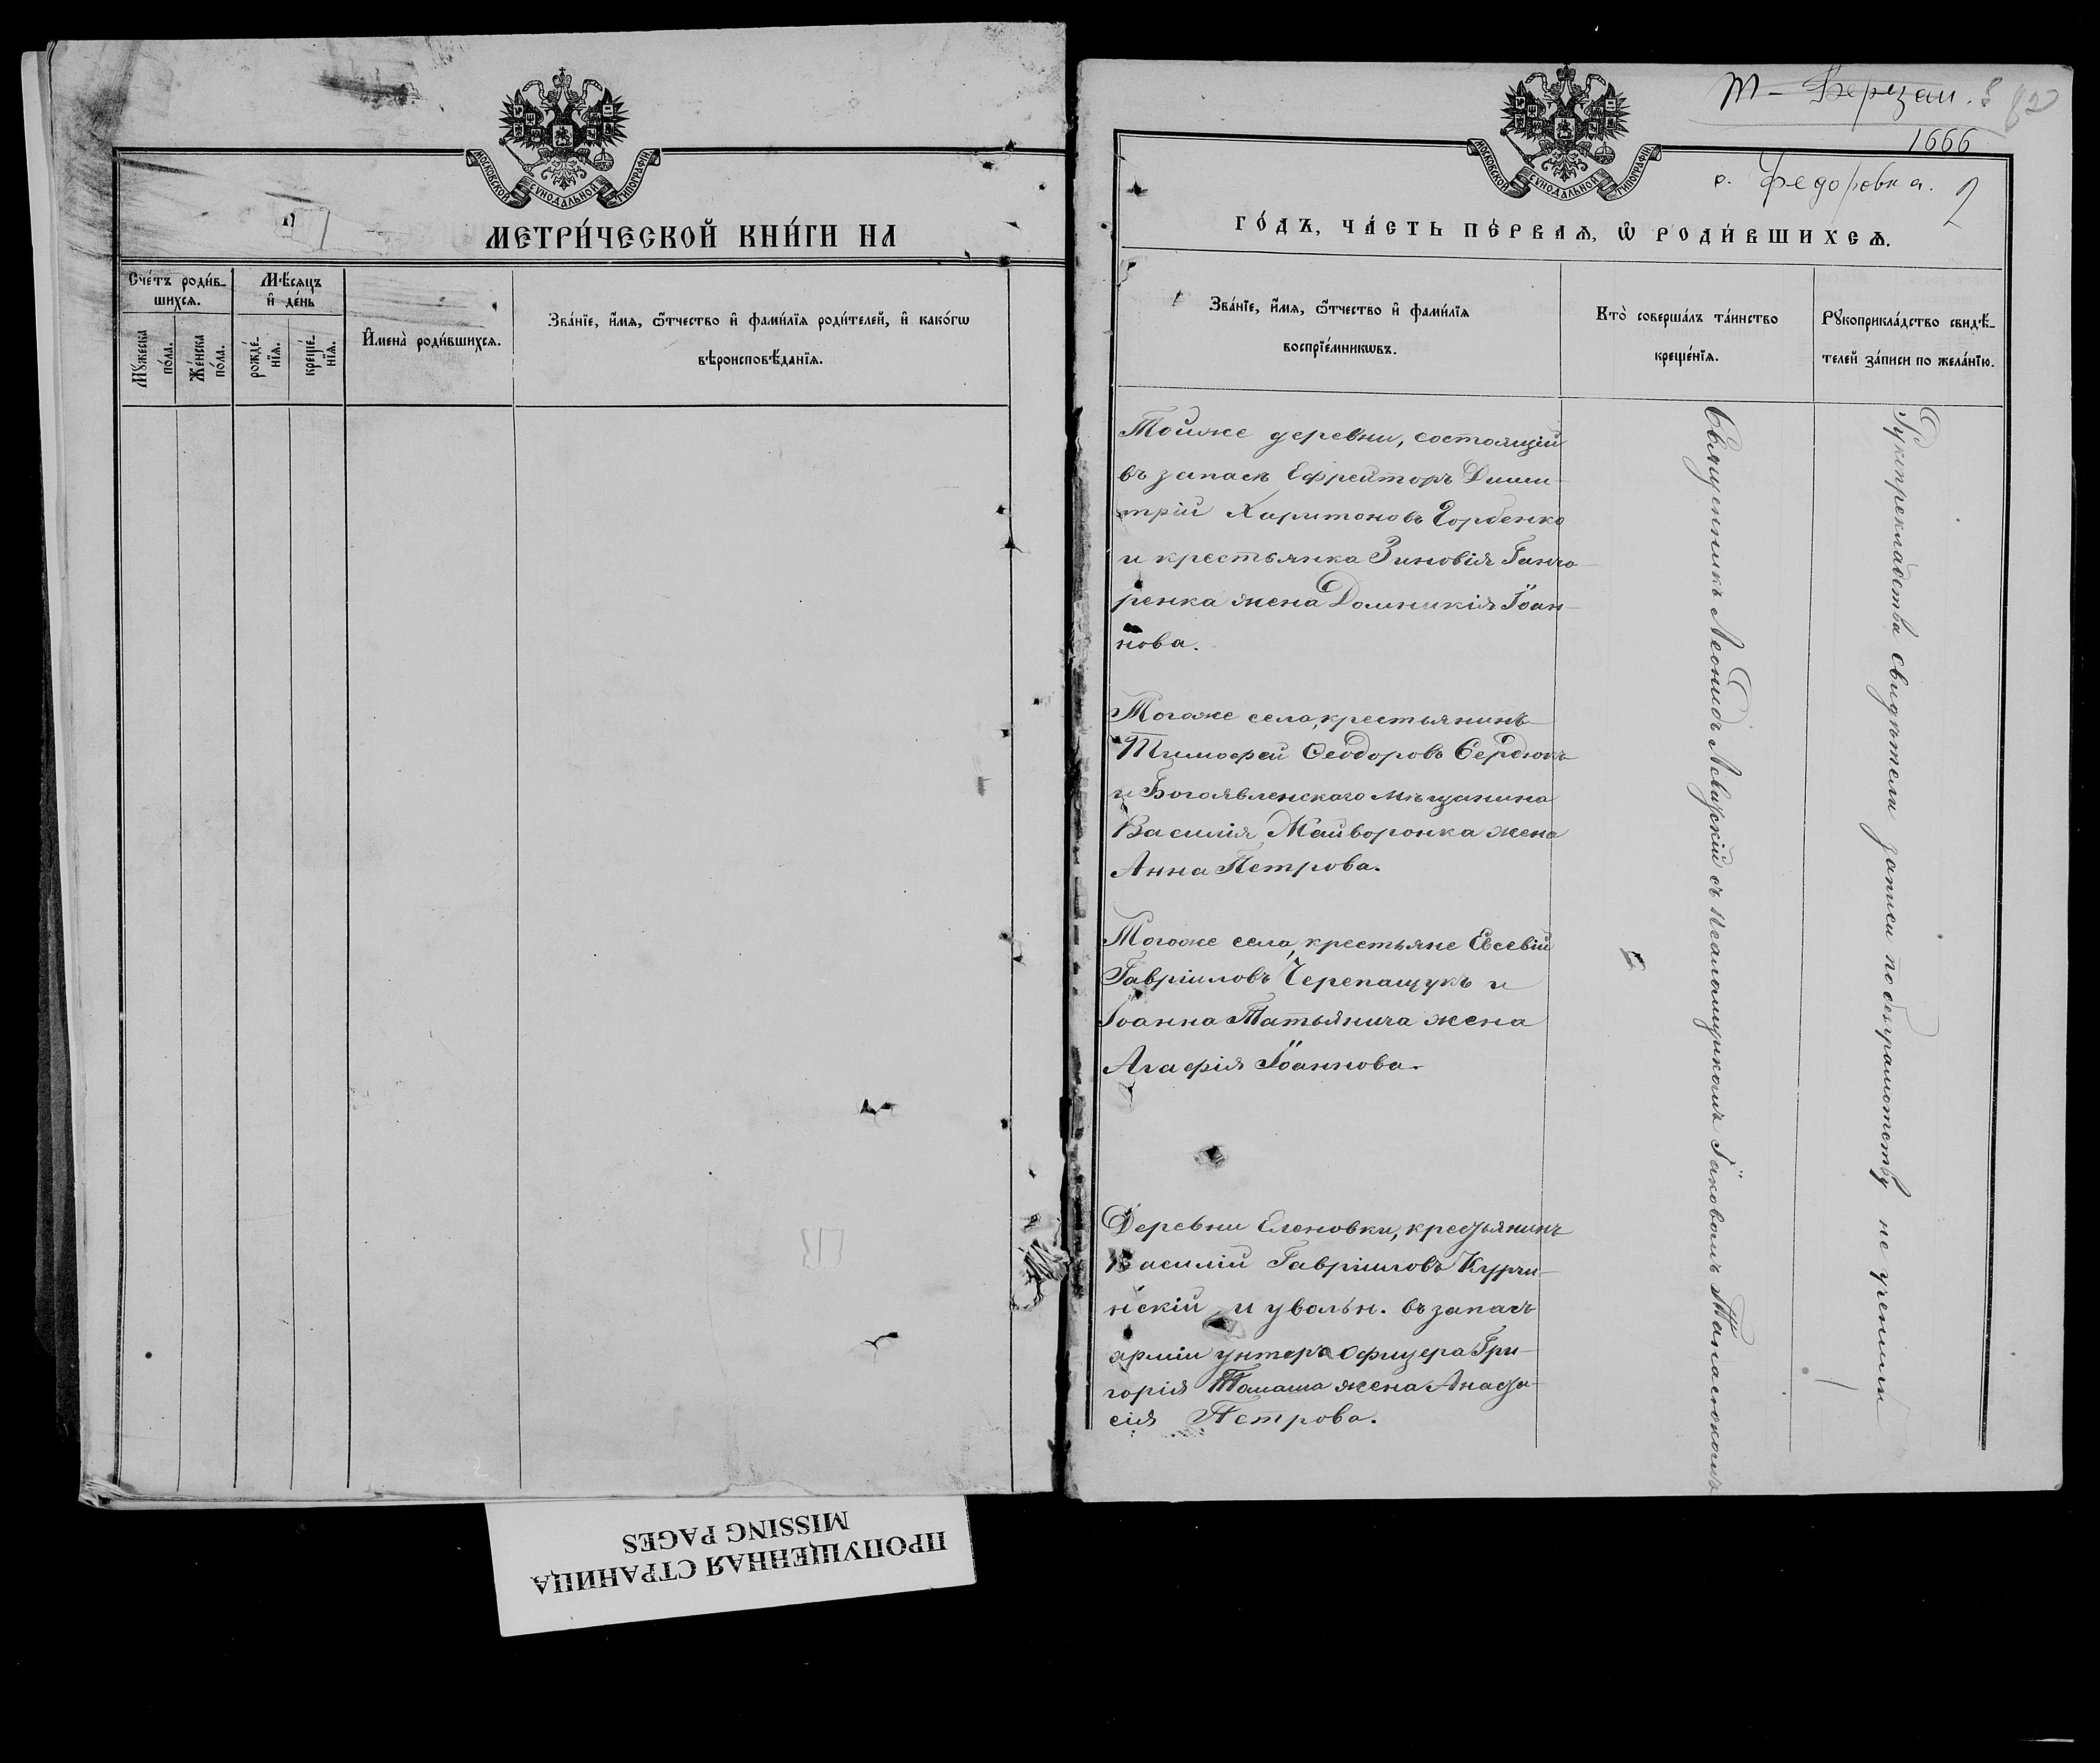 МОСКОВСКОЙ СУНОДАЛЬНОЙ ТИПОГРАФІИ
МЕТРИ́ЧЕСКОЙ КНИ́ГИ НА
Сче́тъ роди́в-
шихсѧ.
Мѣ́сѧцъ
и҆ де́нь
Мꙋ́жеска
по́ла.
Же́нска
по́ла.
рожде́-
нїѧ.
креще́-
нїѧ.
И҆мена̀ роди́вшихсѧ.
Зва́нїе, и҆́мѧ, ѻ҆́тчество и҆ фами́лїѧ роди́телей, и҆ како́гѡ
вѣроисповѣ́данїѧ.
ПРОПУЩЕННАЯ СТРАНИЦА
MISSING PAGES
Т-Березан.
1666
с. Федоровка.
2
МОСКОВСКОЙ СУНОДАЛЬНОЙ ТИПОГРАФІИ
ГО́ДЪ, ЧА́СТЬ ПЕ́РВАѦ, Ѡ҆ РОДИ́ВШИХСѦ.
Зва́нїе, и҆́мѧ, ѻ҆́тчество и҆ фами́лїѧ
воспрїе́мникѡвъ.
Кто̀ соверша́лъ та́инство
креще́нїѧ.
Рꙋкоприкла́дство свидѣ́-
телей за́писи по жела́нїю.
Тойже деревни, состоящій
въ запасѣ Ефрейторъ Дими-
трій Харитоновъ Горбенко
и крестьянка Зиновія Ганчо-
ренка жена Домникія Іоан-
нова.
Тогоже села, крестьянинъ
Тимофей Ѳеодоровъ Сердюкъ
и Богоявленскаго мѣщанина
Василія Майворонка жена
Анна Петрова.
Тогоже села, крестьяне Евсевій
Гавріиловъ Черепащукъ и
Іоанна Татьянича жена
Агафія Іоаннова.
Деревни Еленовки, крестьянинъ
Василій Гавріиловъ Курчи-
нскій и увольн. въ запасъ
арміи унтеръ офицера Гри-
горія Тамаша жена Анаста-
сія Петрова.
Священникъ Леонидъ Левицкій съ псаломщикомъ Іаковомъ Танасюкомъ
Рукоприкладства свидѣтели записи по безграмотству не учинили